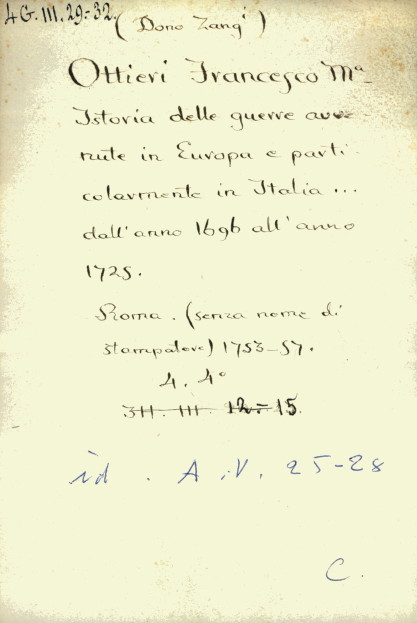 4G. III. 29-32.
(Dono Zangi)
Ottieri Francesco Mª
Istoria delle guerre avve-
nute in Europa e parti-
colarmente in Italia ...
dall'anno 1696 all'anno
1725.
Roma. (senza nome di
stampatore) 1753-57.
4. 4°
3H. III. 12-15.
id. A.V. 25-28
C.